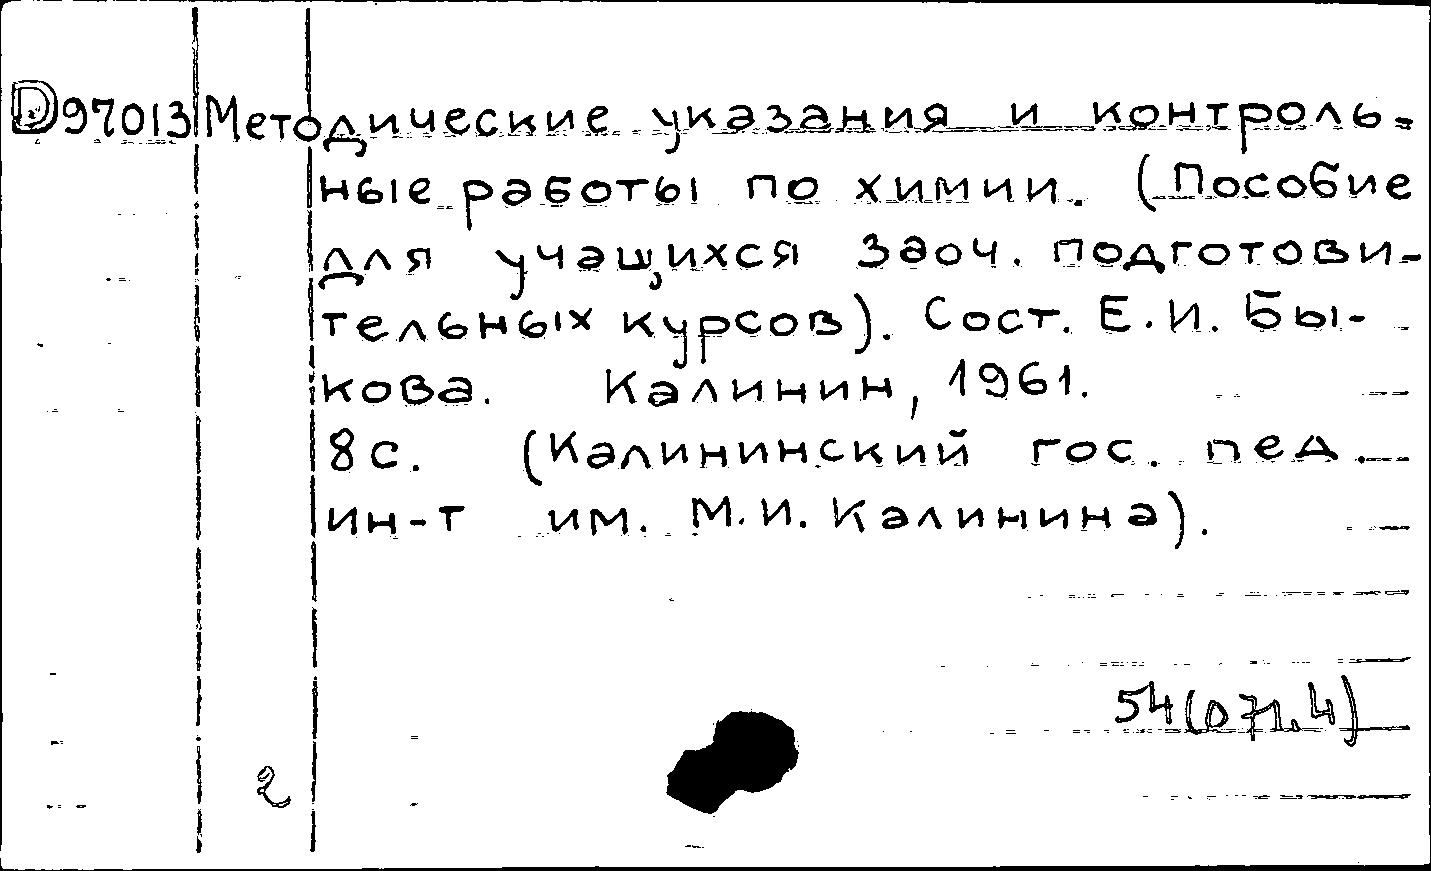 D97013 Методические указания и контроль-
ные работы по химии. (Пособие
для учащихся заоч. подготови-
тельных курсов). Сост. Е.И. Бы-
кова. Калинин, 1961.
8с. (Калининский гос. пед.
ин-т им. М.И. Калинина).
54(071.4)
2